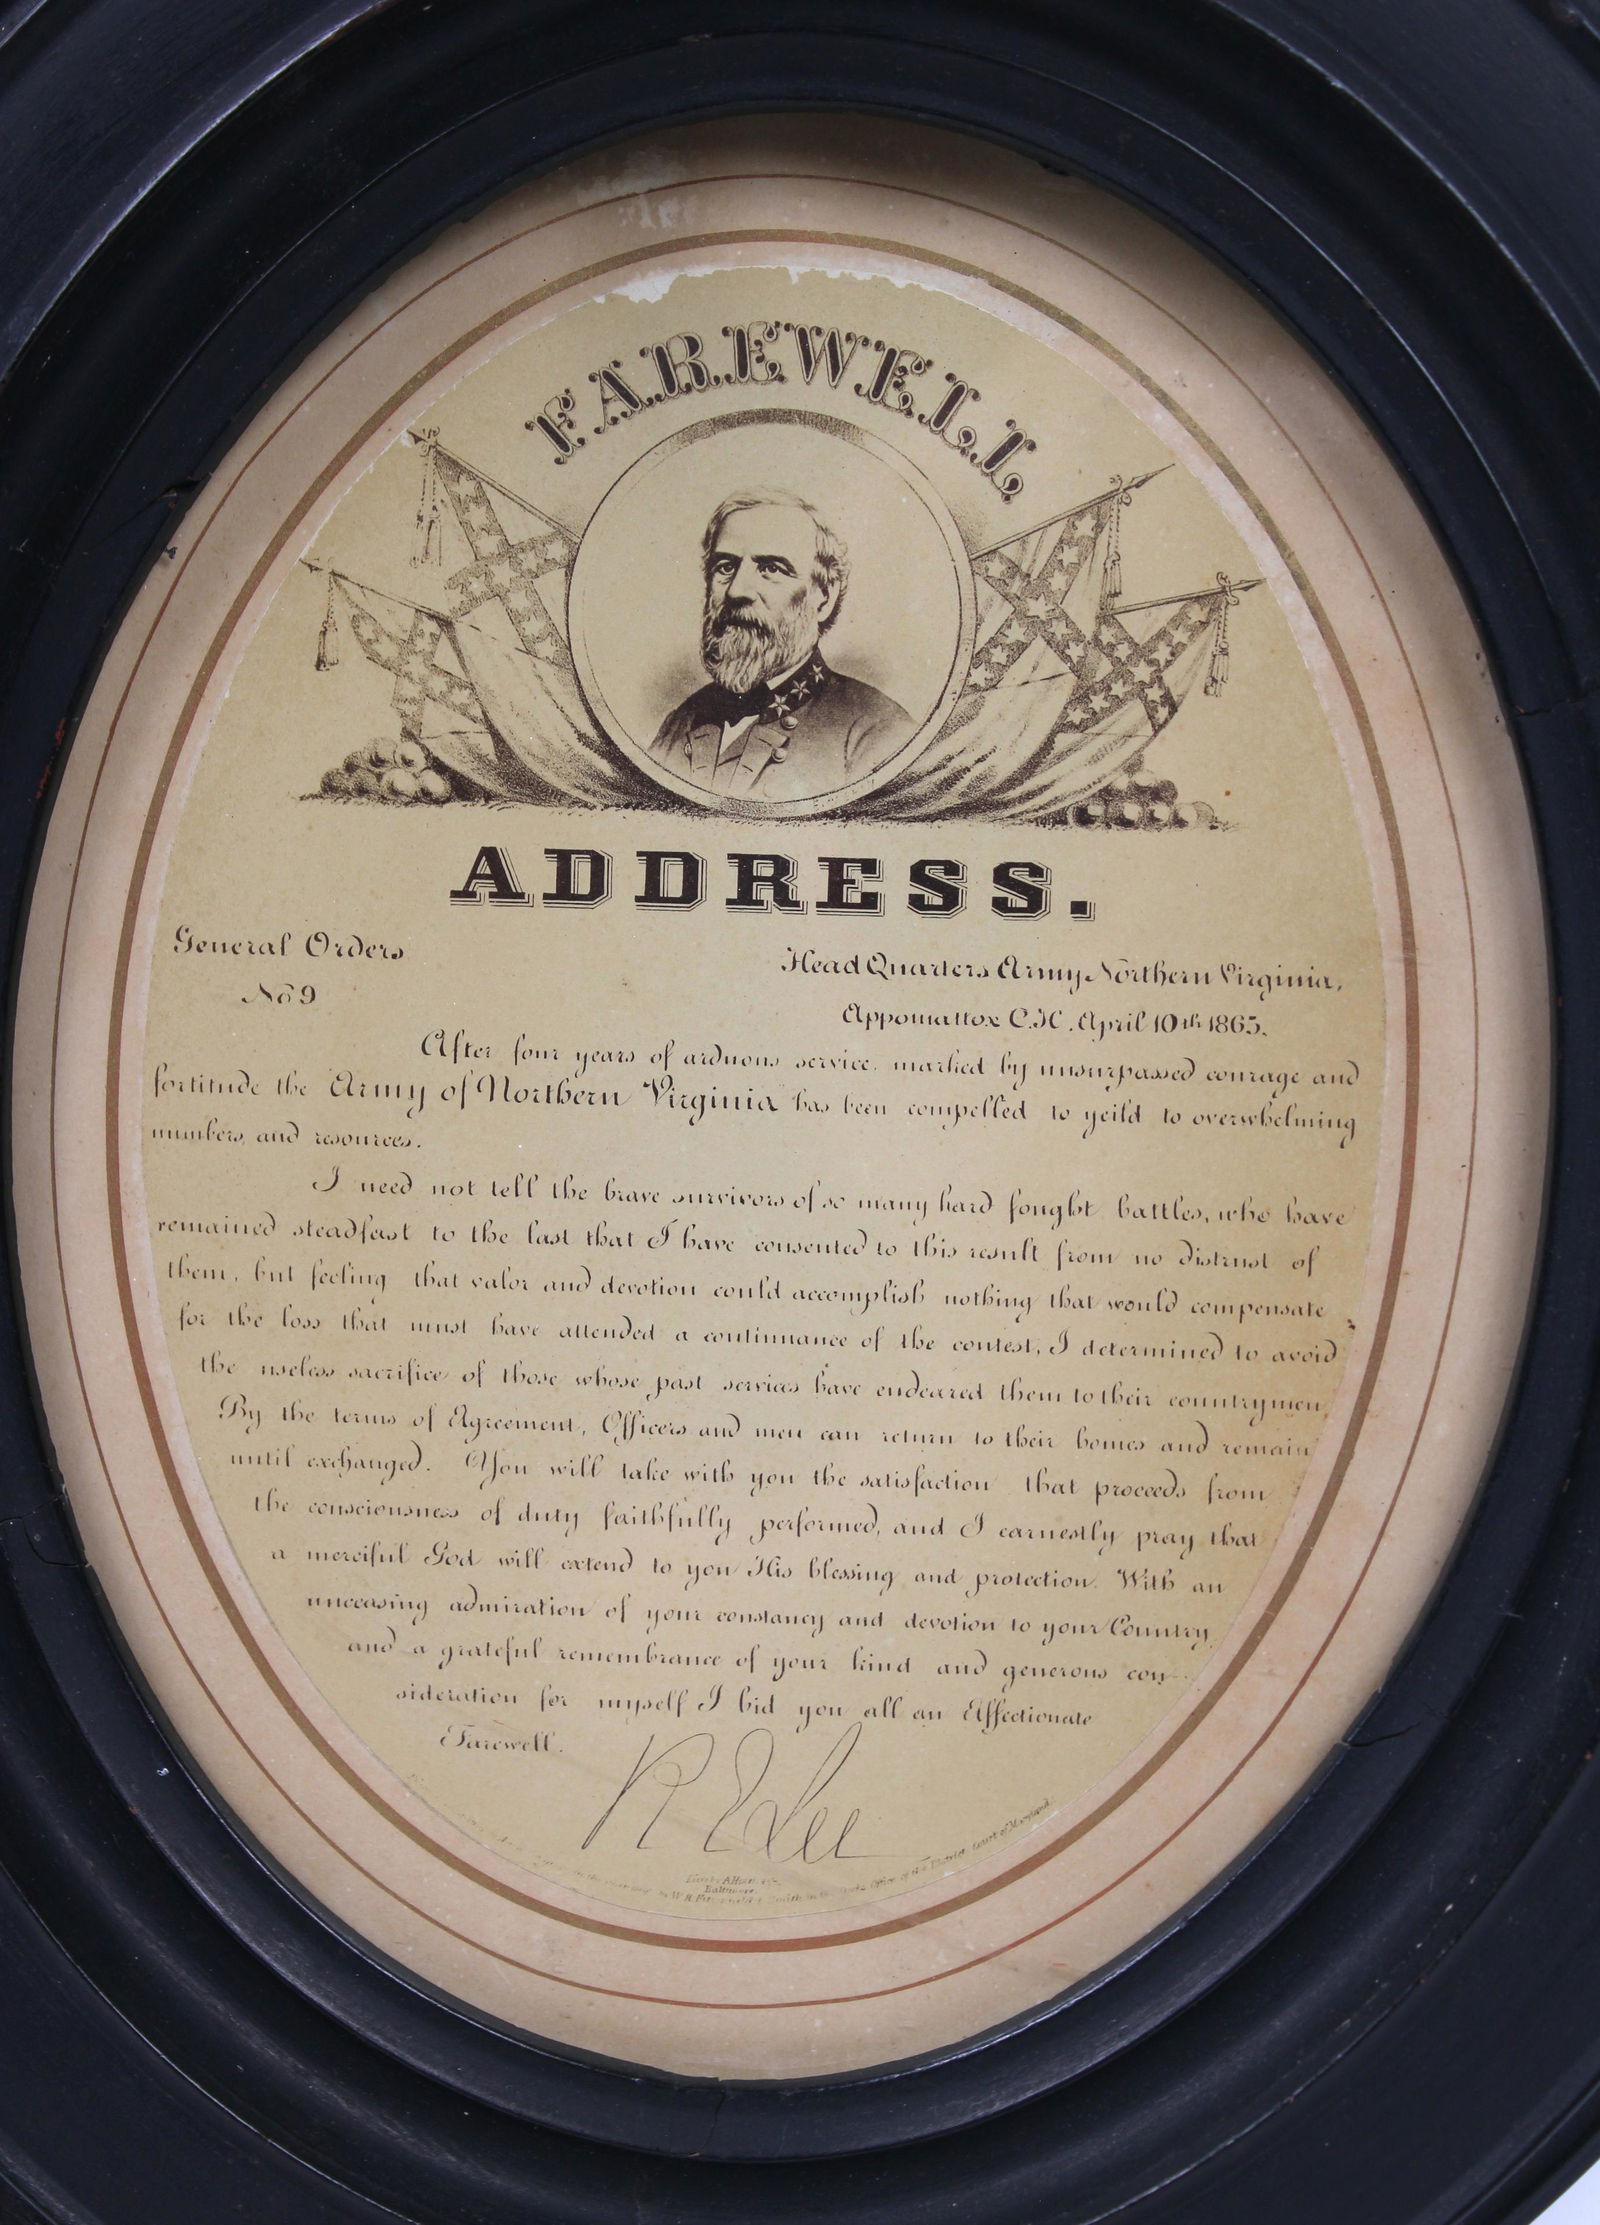 FAREWELL
ADDRESS.
General Orders
No 9
Head Quarters Army Northern Virginia,
Appomattox C.H. April 10th 1865.
After four years of arduous service, marked by unsurpassed courage and
fortitude the Army of Northern Virginia has been compelled to yeild to overwhelming
numbers, and resources.
I need not tell the brave survivors of so many hard fought battles, who have
remained steadfast to the last that I have consented to this result from no distrust of
them, but feeling that valor and devotion could accomplish nothing that would compensate
for the loss that must have attended a continuance of the contest, I determined to avoid
the useless sacrifice of those whose past services have endeared them to their countrymen.
By the terms of Agreement, Officers and men can return to their homes and remain
until exchanged. You will take with you the satisfaction that proceeds from
the consciousness of duty faithfully performed, and I earnestly pray that
a merciful God will extend to you His blessing and protection. With an
unceasing admiration of your constancy and devotion to your Country,
and a grateful remembrance of your kind and generous con-
sideration for myself I bid you all an Affectionate
Farewell.
R E Lee
Baltimore.
Office of the District Court of Maryland.